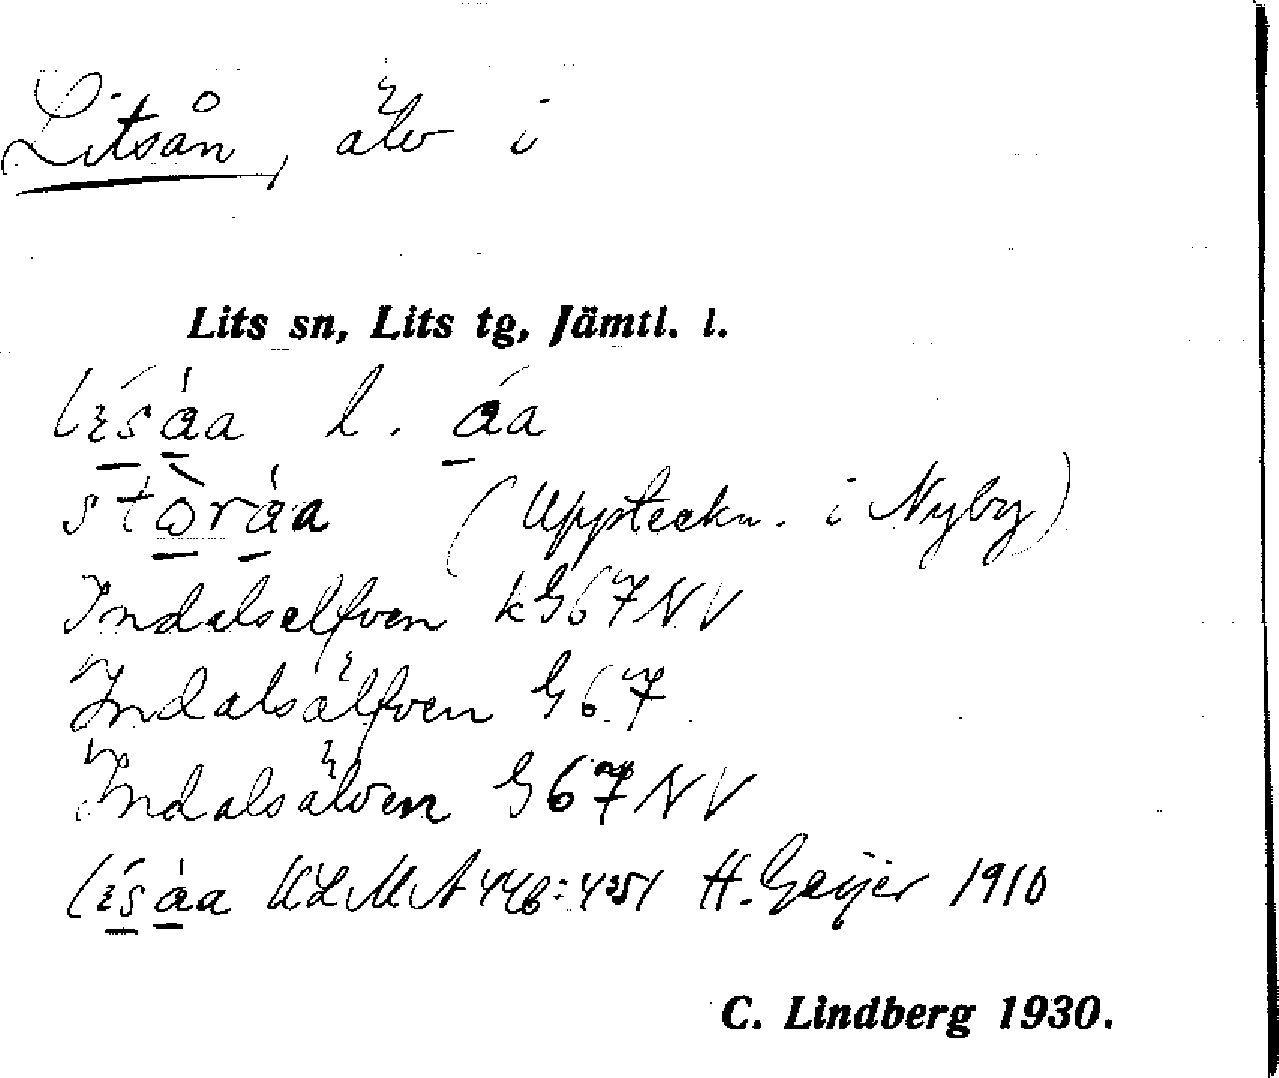 Litsån, älv i
Lits sn, Lits tg, Jämtl. l.
l. åa
(Uppteckn. i Nyby)
Indalselfven k G67NV
Indalsälfven G67
Indalsälven G67NV
ULMA 446:4 H. Geijer 1910
C. Lindberg 1930.